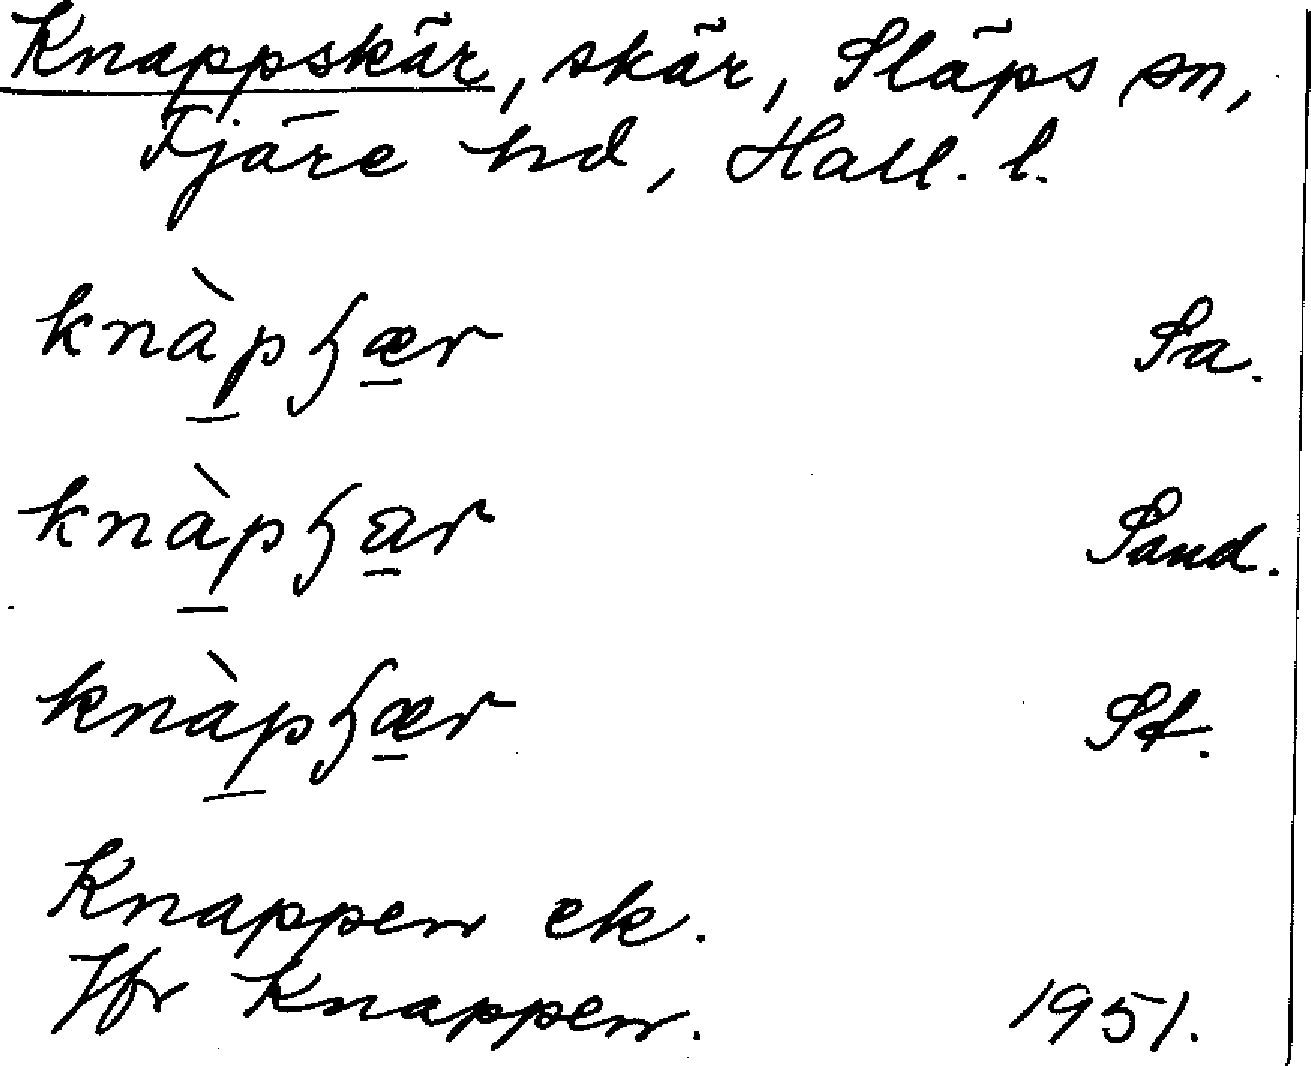 Knappskär, skär, Släps sn,
Fjäre hd, Hall. l.
knàpʒær Sa.
knàpʒar Sand.
knàpʒær St.
Knappen ek.
Jfr Knappen. 1951.